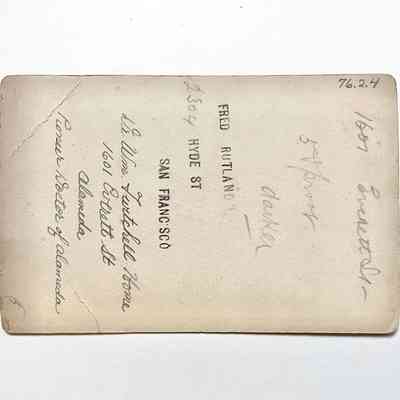 76.2.4
1601 Everett St-
5 x 7 proof
darker
FRED RUTLAND
2304 HYDE ST
SAN FRANCSCO
Dr Wm Twitchell Home
1601 Everett St
Alameda
Pioneer Doctor of Alameda